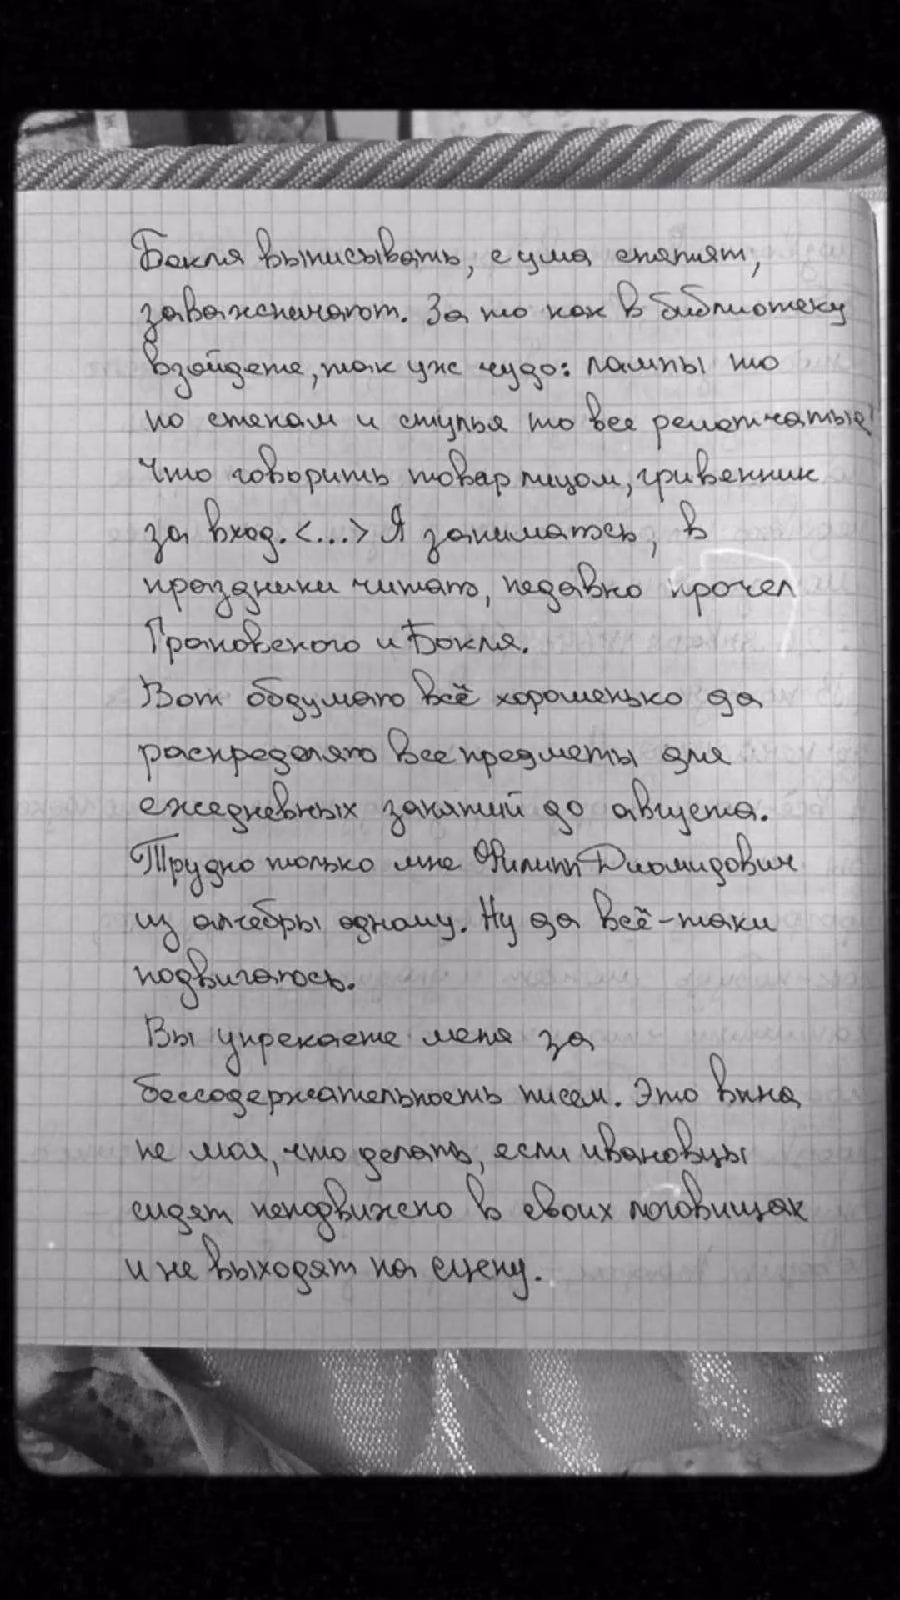 Бокля выписывать, с ума спятят,
заважничают. За то как в библиотеку
взойдете, так уж чудо: лампы то
по стенам и стулья то все решотчатые!
Что говорить товар лицом, гривенник
за вход. <...> Я заниматсь, в
праздники читаю, недавно прочел
Грановского и Бокля.
Вот обдумаю всё хорошенько да
распределяю все предметы для
ежедневных занятий до августа.
Трудно только мне Филипп Диомидович
из алгебры одному. Ну да всё-таки
подвигаюсь.
Вы упрекаете меня за
бессодержательность писем. Это вина
не моя, что делать, если ивановцы
сидят неподвижно в своих логовищах
и не выходят на сцену.